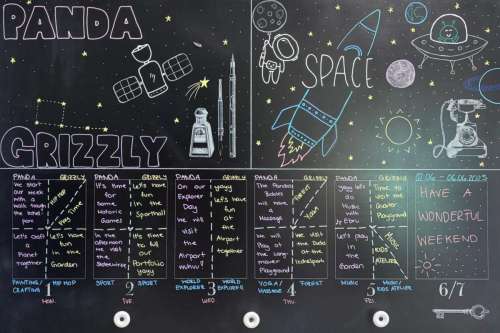 PANDA
GRIZZLY
SPACE
PANDA
We start
our week
with a
walk trough
the hotel
park
Let's craft
a
Planet
together
GRIZZLY
HIP HOP
Play Time
Let's have
fun
in the
Garden
PAINTING/
CRAFTING
1
HIP HOP
MON
PANDA
It's time
for
some
Motoric
Games
In the
afternoon
we visit
the
GRIZZLY
Let's have
fun
in the
Sporthall
It's time
to fill
our
Portfolio
yayy
SPORT
2
SPORT
TUE
PANDA
On our
Explorer
Day
we will
visit
the
Airport
GRIZZLY
yayy
Let's
visit
the
Airport
together
WORLD
EXPLORER
3
WORLD
EXPLORER
WED
PANDA
The Pandas
Babies
will have
a
Massage
We will
Play at
the
Playground
GRIZZLY
FOREST
DAY
We visit
the
at the
YOGA/
MASSAGE
4
FOREST
THU
PANDA
yayy let's
do
Music
with
Let's play
in
the
Garden
GRIZZLY
Time to
visit the
Playground
MUSIC
KIDS
ATELIER
MUSIC
5
MUSIC/
KIDS ATELIER
FRI
02.06 - 06.06.2025
HAVE
A
WONDERFUL
WEEKEND
6/7